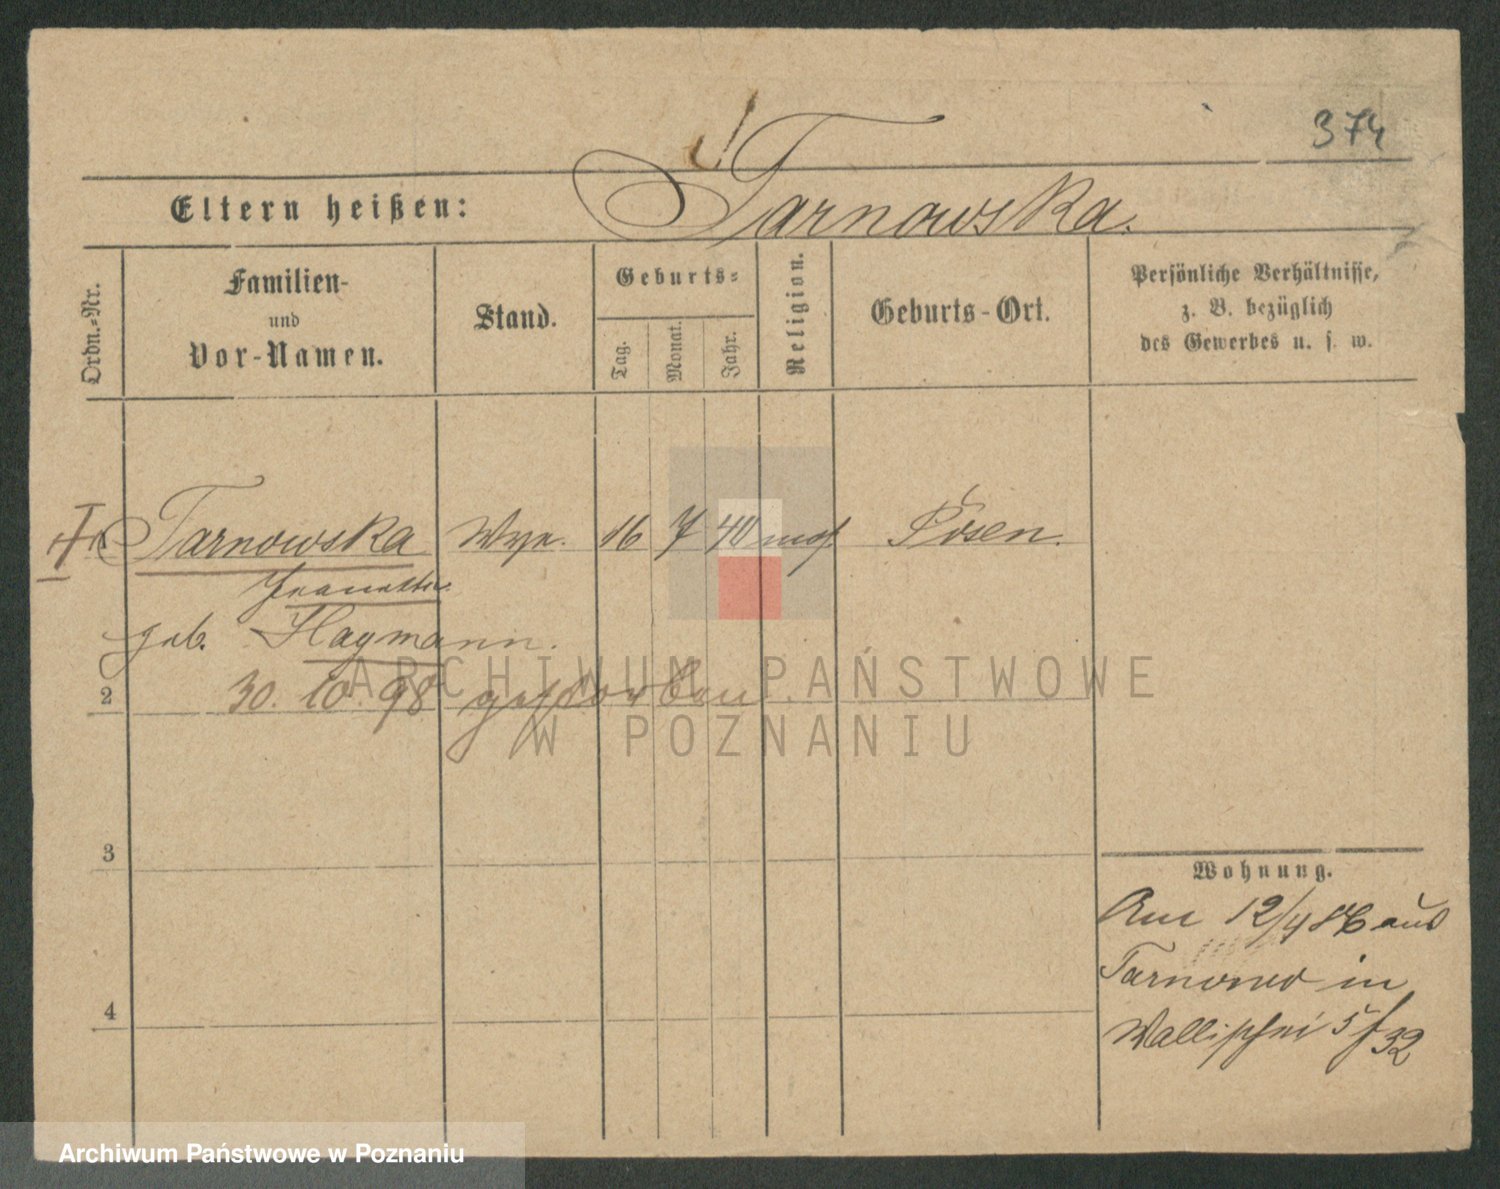 374
Eltern heißen: Tarnowska.
Ordn.-Nr.
Familien-
und
Vor-Namen.
Stand.
Geburts-
Tag.
Monat.
Jahr.
Religion.
Geburts-Ort.
Persönliche Verhältnisse,
z. B. bezüglich
des Gewerbes u. s. w.
Tarnowska 16 7 40 mos. Posen.
geb. Hagmann.
2 30. 10. 98 gestorben.
3
4
Wohnung.
Am 12/4 86 aus
Tarnowo in
Wallischei 5 f 32
ARCHIWUM PAŃSTWOWE
W POZNANIU
Archiwum Państwowe w Poznaniu